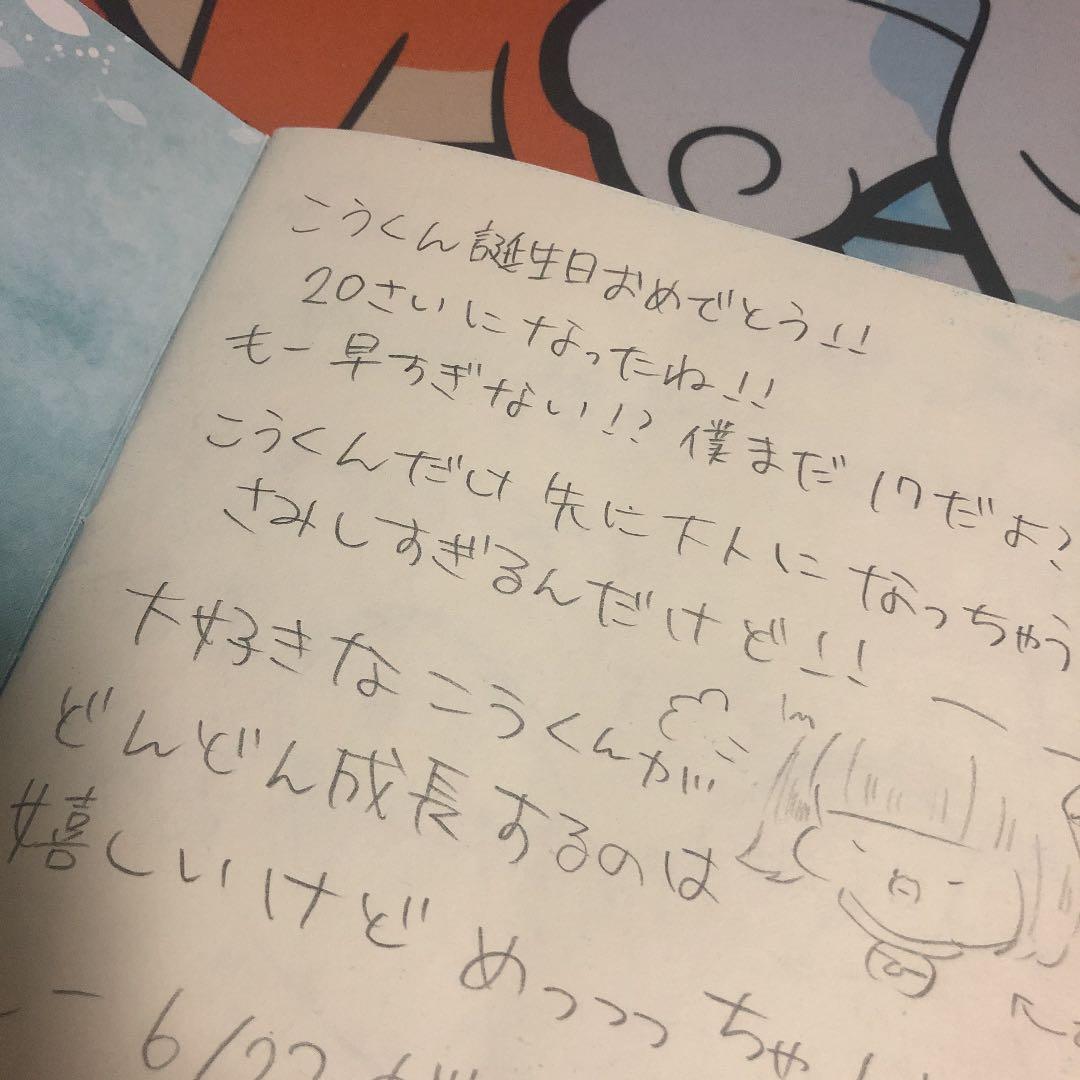 こうくん誕生日おめでとう!!
20さいになったね!!
もー早ちぎない!?僕まだ17だよ?
こうくんだけ先に大人になっちゃう
さみしすぎるんだけど!!
大好きなこうくんが
どんどん成長するのは
嬉しいけどめっっっちゃ
6/22